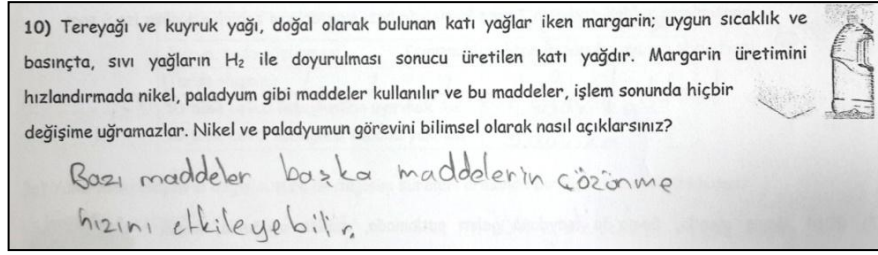 10) Tereyağı ve kuyruk yağı, doğal olarak bulunan katı yağlar iken margarin; uygun sıcaklık ve
basınçta, sıvı yağların H₂ ile doyurulması sonucu üretilen katı yağdır. Margarin üretimini
hızlandırmada nikel, paladyum gibi maddeler kullanılır ve bu maddeler, işlem sonunda hiçbir
değişime uğramazlar. Nikel ve paladyumun görevini bilimsel olarak nasıl açıklarsınız?
Bazı maddeler başka maddelerin çözünme
hızını etkileyebilir.